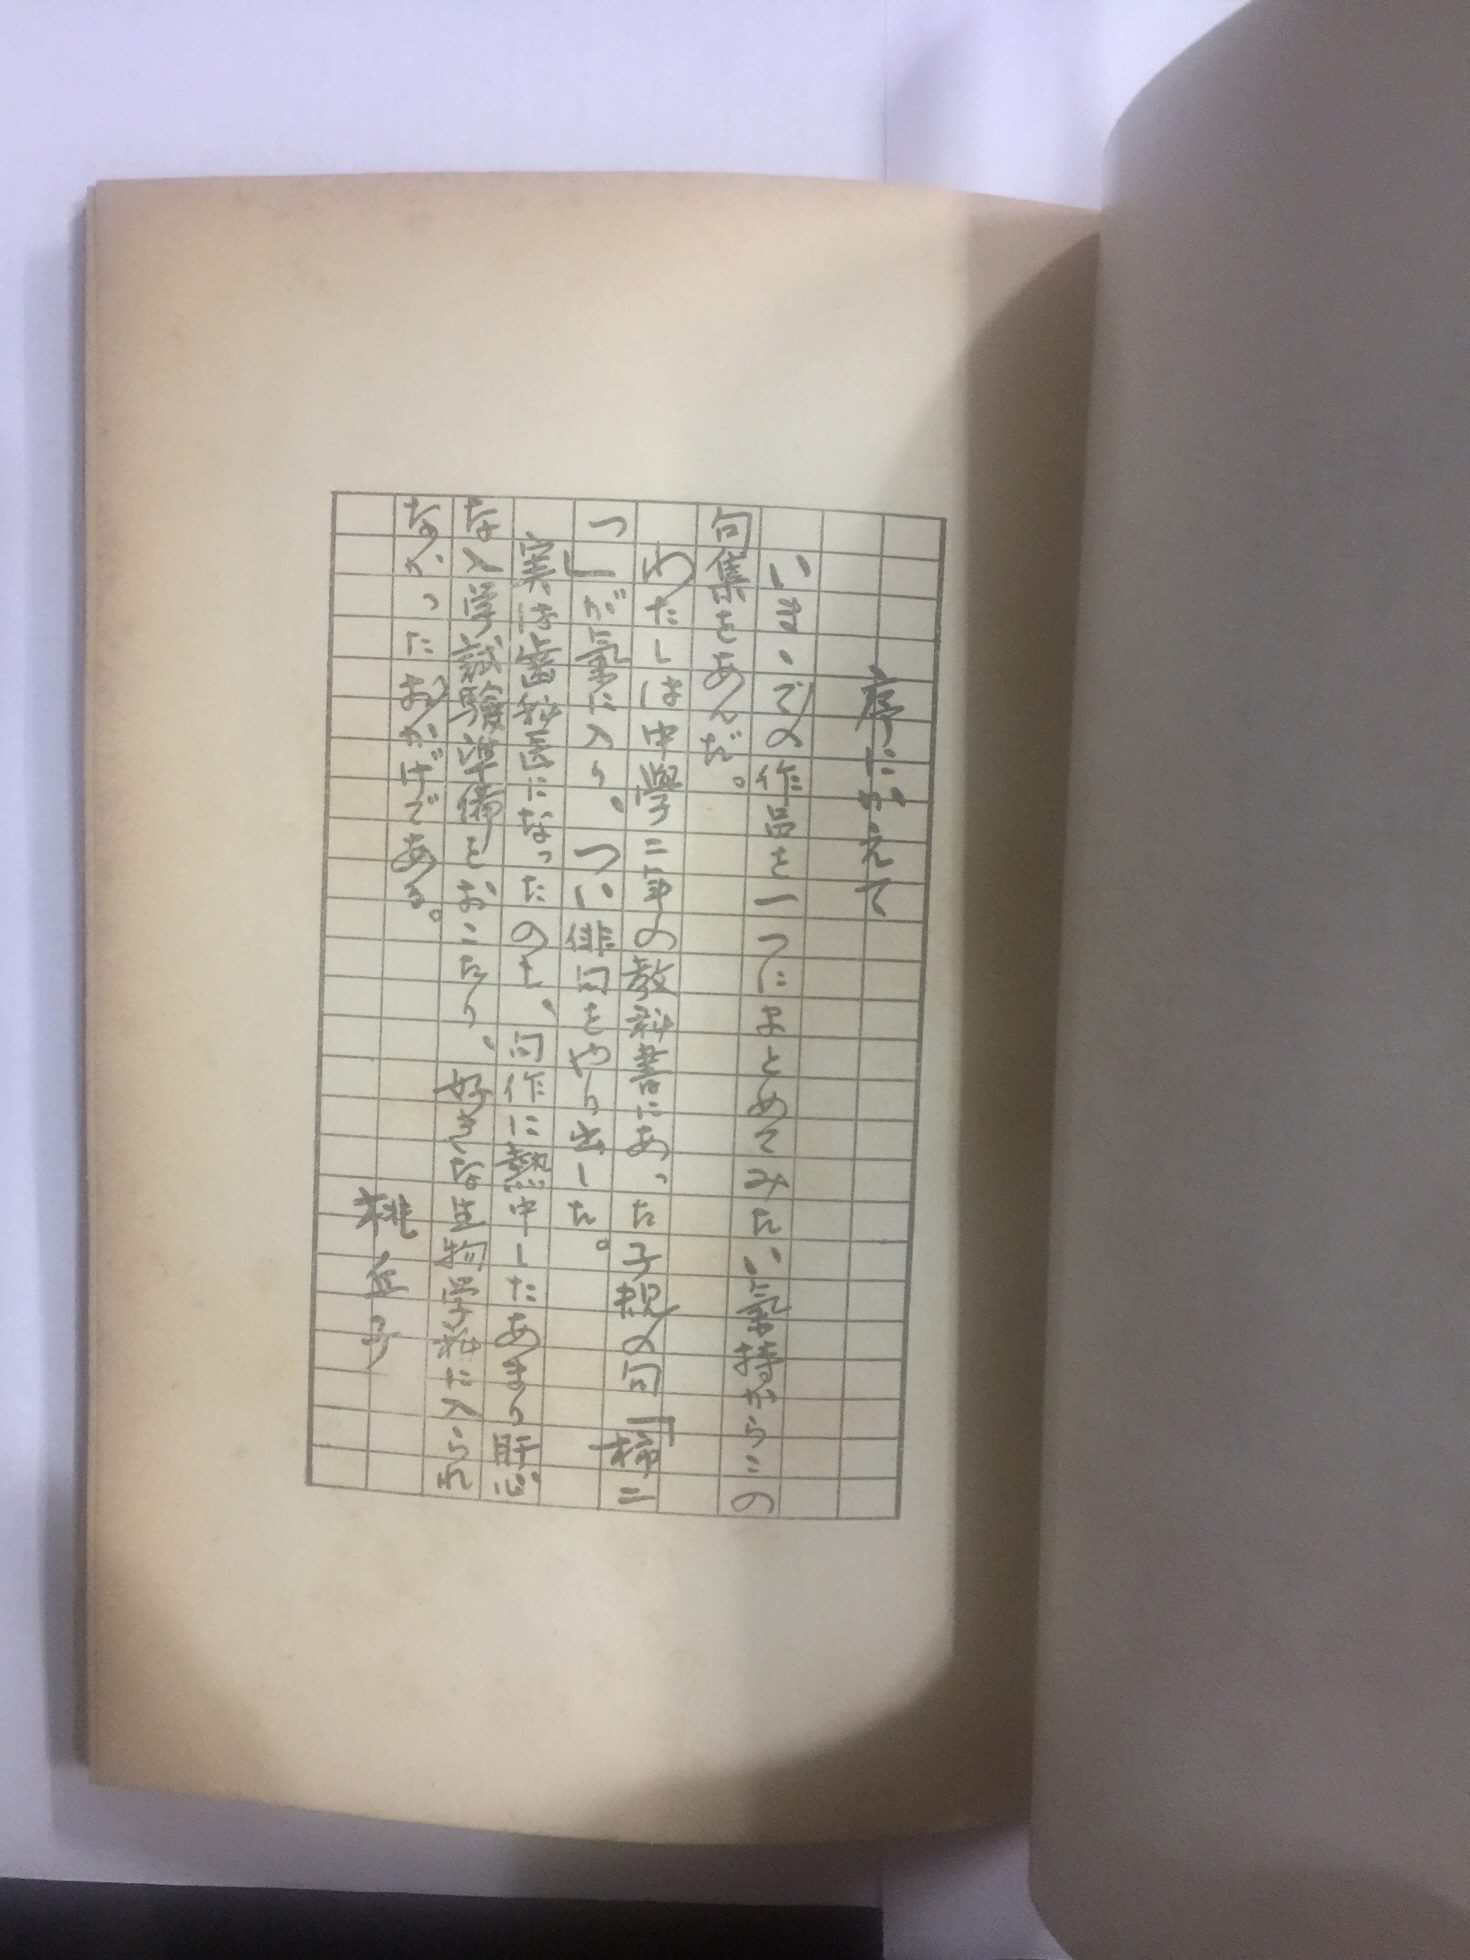 序にかえて
いまゝでの作品を一つにまとめてみたい氣持からこの
句集をあんだ。
わたしは中學二年の教科書にあった子規の句「柿二
つ」が氣に入り、つい俳句をやり出した。
実は歯科医になったのも、句作に熱中したあまり肝心
な入学試験準備をおこたり、好きな生物学科に入られ
なかったおかげである。
桃丘子